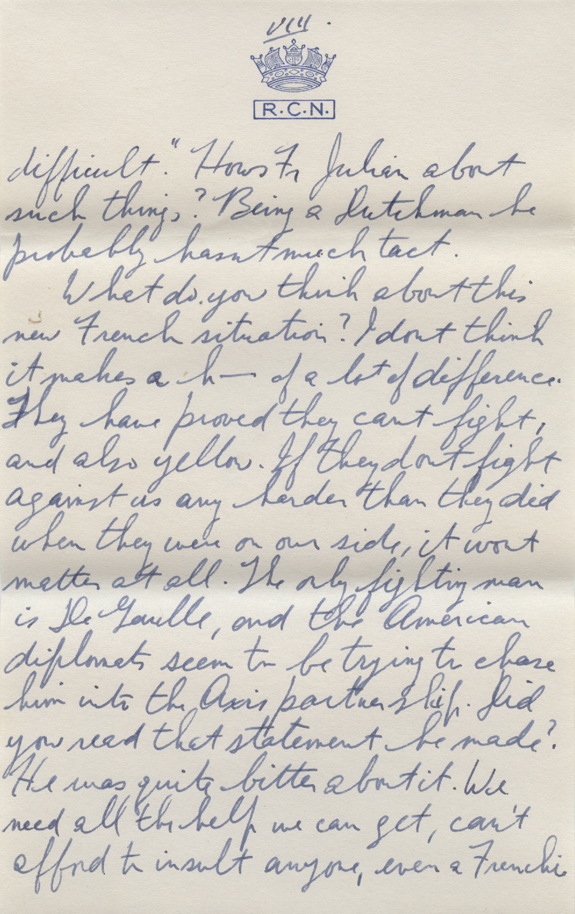 VIII.
R.C.N.
difficult." Hows Fr Julian about
such things? Being a Dutchman he
probably hasnt much tact.
What do you think about this
new French situation? I dont think
it makes a h— of a lot of difference.
They have proved they cant fight,
and also yellow. If they dont fight
against us any harder than they did
when they were on our side, it wont
matter at all. The only fighting man
is De Gaulle, and the American
diplomats seem to be trying to chase
him into the Axis partnership. Did
you read that statement he made?
He was quite bitter about it. We
need all the help we can get, can't
afford to insult anyone, even a Frenchie